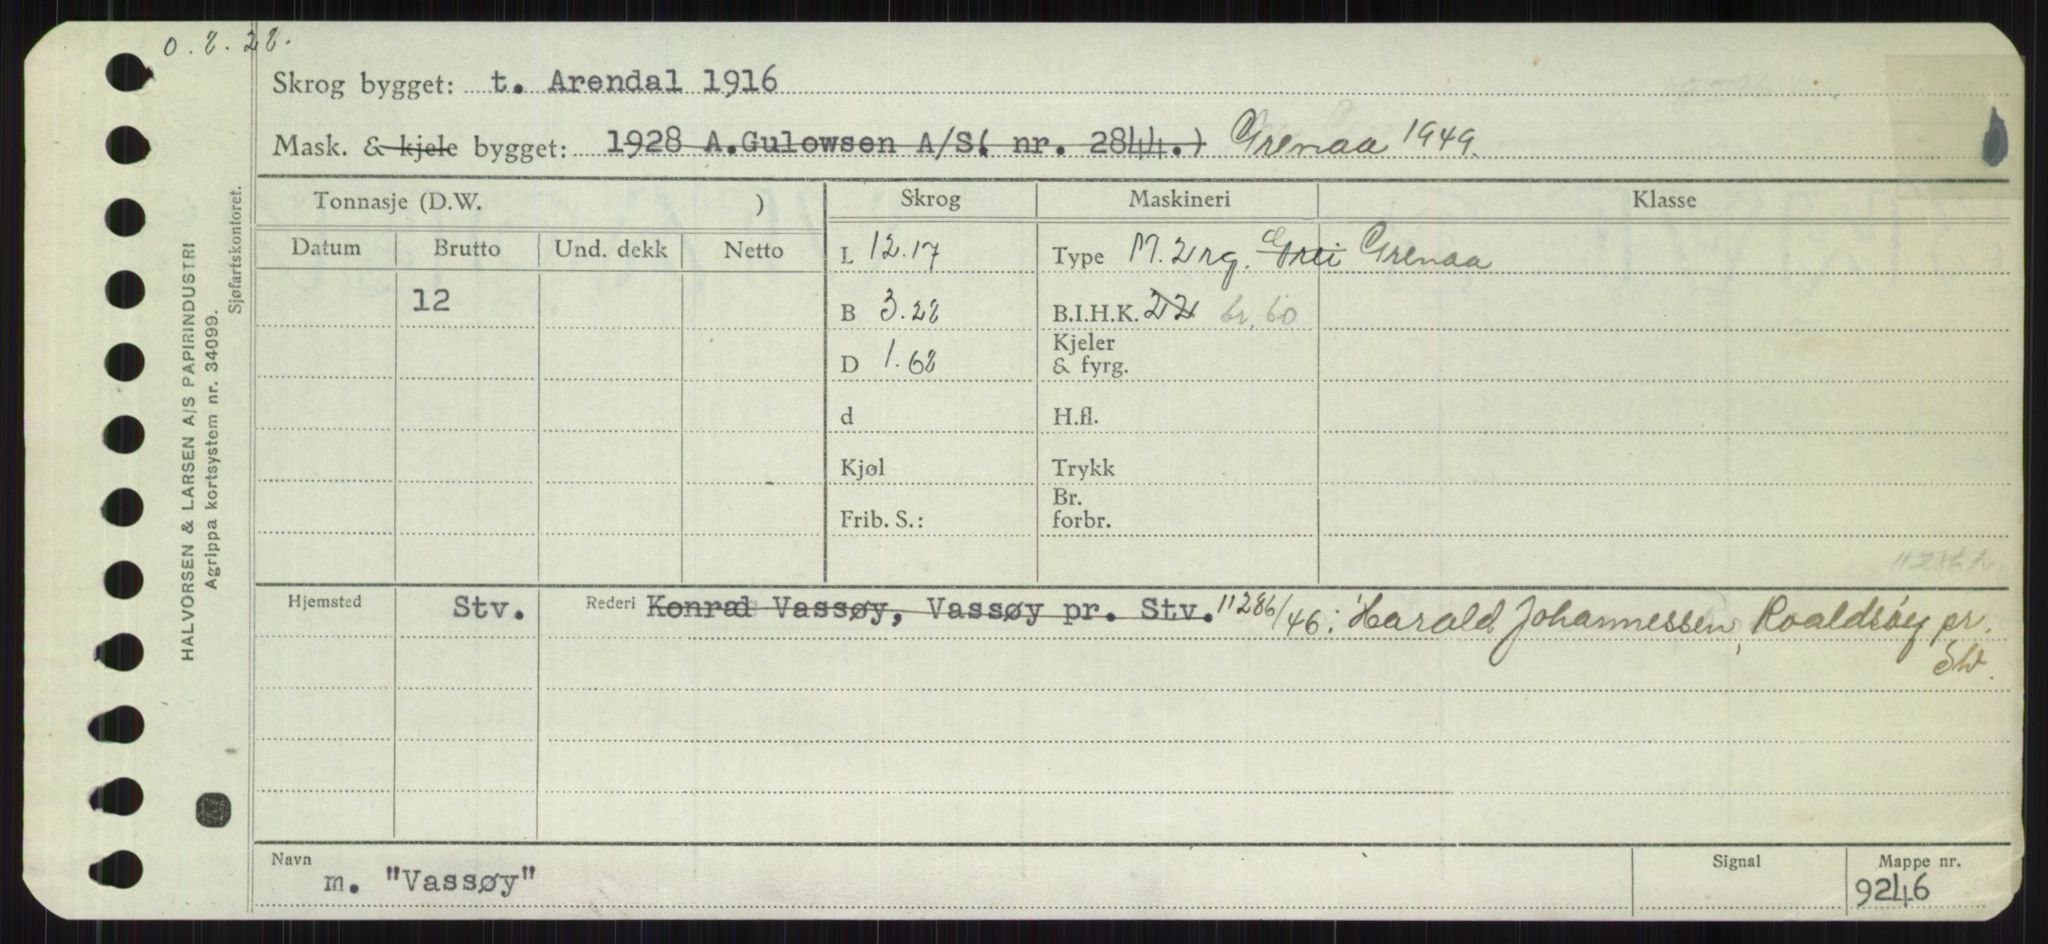 0.8.28.
Skrog bygget: t. Arendal 1916
Mask. & kjele bygget: 1928 A.Gulowsen A/S( nr. 2844.) Grenaa 1949.
Tonnasje (D.W. )
Skrog
Maskineri
Klasse
Datum
Brutto
Und. dekk
Netto
L 12.17
Type M. 2 rg. Grei Grenaa
12
B 3.28
B.I.H.K. 22 br. 60
D 1.68
Kjeler
& fyrg.
d
H.fl.
Kjøl
Trykk
Frib. S.:
Br.
forbr.
Hjemsted Stv.
Rederi Konrad Vassøy, Vassøy pr. Stv. 11286/46: Harald Johannessen, Roaldsøy pr.
Stv.
Navn
m. "Vassøy"
Signal
Mappe nr.
9246
HALVORSEN & LARSEN A/S PAPIRINDUSTRI
Agrippa kortsystem nr. 34099.
Sjøfartskontoret.